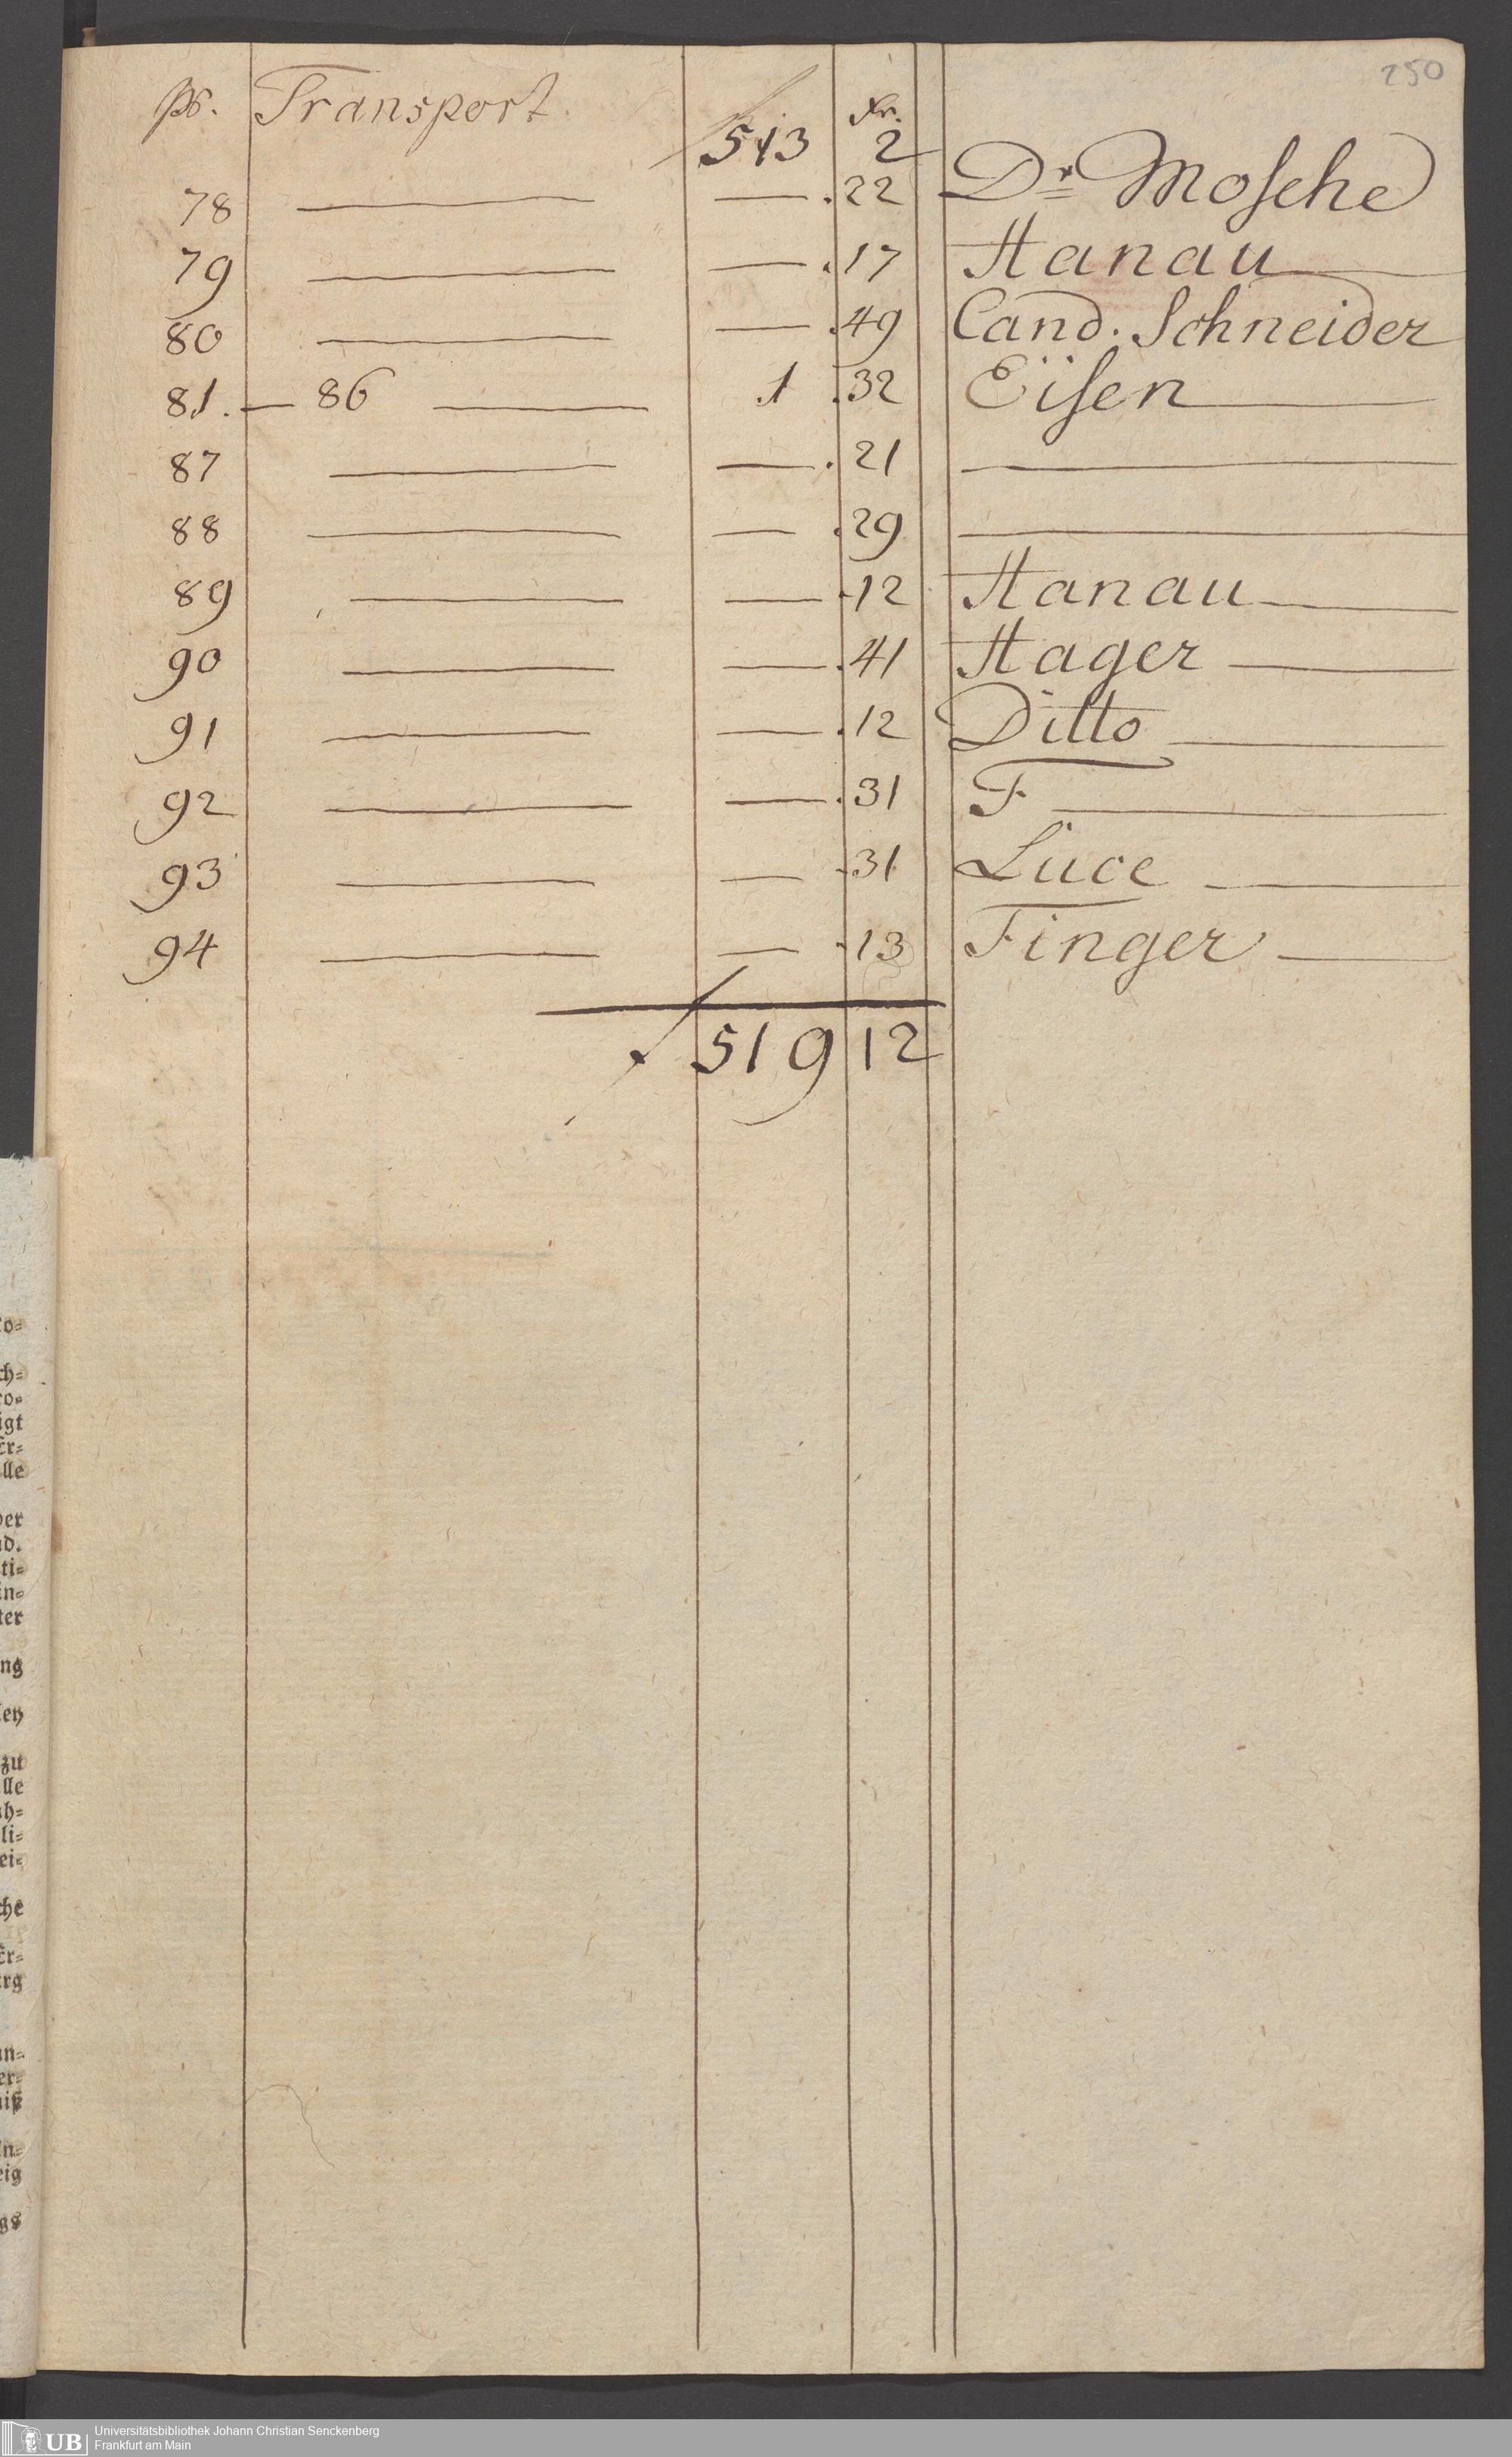 250
Transport. Xr.
513 2
78 — — .22 Dr Mosche
79 — — .17 Hanau —
80 — — .49 Cand. Schneider
81. — 86 — 1 .32 Eisen —
87 — — .21 —
88 — — .29 —
89 — — .12 Hanau —
90 — — .41 Hager —
91 — — .12 Ditto —
92 — — .31 F —
93 — — .31 Luce —
94 — — .13 Finger —
519 12
ch=
igt
Er=
lle
ti=
in=
ter
ng
zu
lle
li=
ei=
che
Er=
rg
er=
eig
UB Universitätsbibliothek Johann Christian Senckenberg
Frankfurt am Main